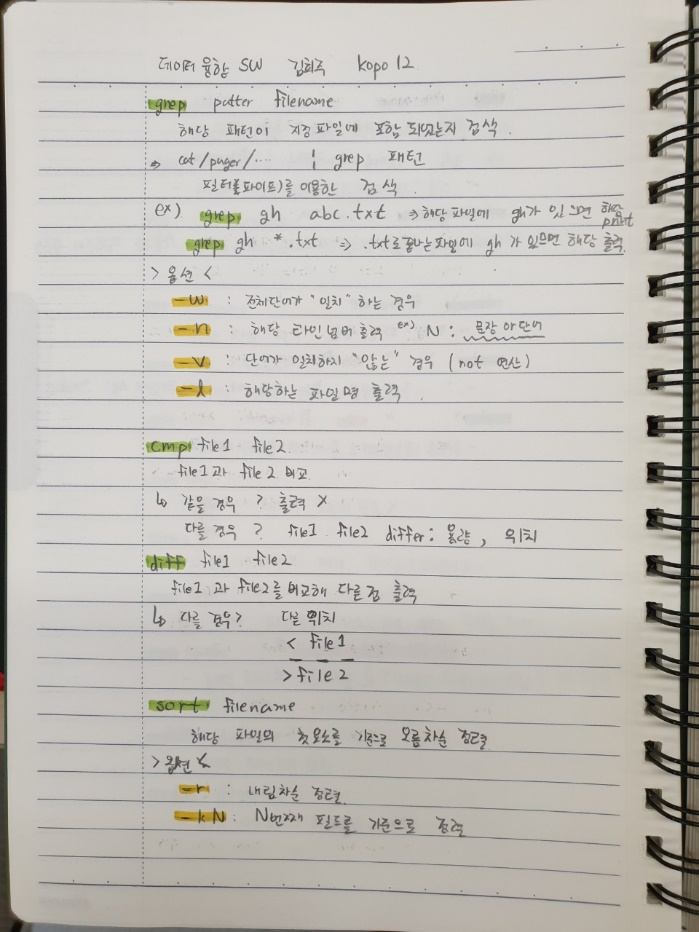 데이터 융합 SW 김희주 kopo 12
grep patter filename
해당 패턴이 지정파일에 포함 되었는지 검색.
⇒ cat/pager/.... | grep 패턴
필터(파이프)를 이용한 검색.
ex) grep gh abc.txt ⇒ 해당 파일에 gh가 있으면 해당 print
grep gh *.txt ⇒ .txt로 끝나는 파일에 gh가 있으면 해당 출력.
> 옵션 <
-w : 전체단어가 "일치" 하는 경우
-n : 해당 라인 넘버 출력 ex) N : 문장 or 단어
-v : 단어가 일치하지 "않는" 경우 (not 연산)
-l : 해당하는 파일명 출력.
cmp file1 file2.
file1과 file2 비교.
↳ 같을 경우 ? 출력 X
다를 경우 ? file1 file2 differ : 용량, 위치
diff file1 file2
file1 과 file2를 비교해 다른 점 출력
↳ 다를 경우? 다른 위치
< file1
---
> file2
sort filename
해당 파일의 첫요소를 기준으로 오름차순 정렬
> 옵션 <
-r : 내림차순 정렬.
-kN : N번째 필드를 기준으로 정렬